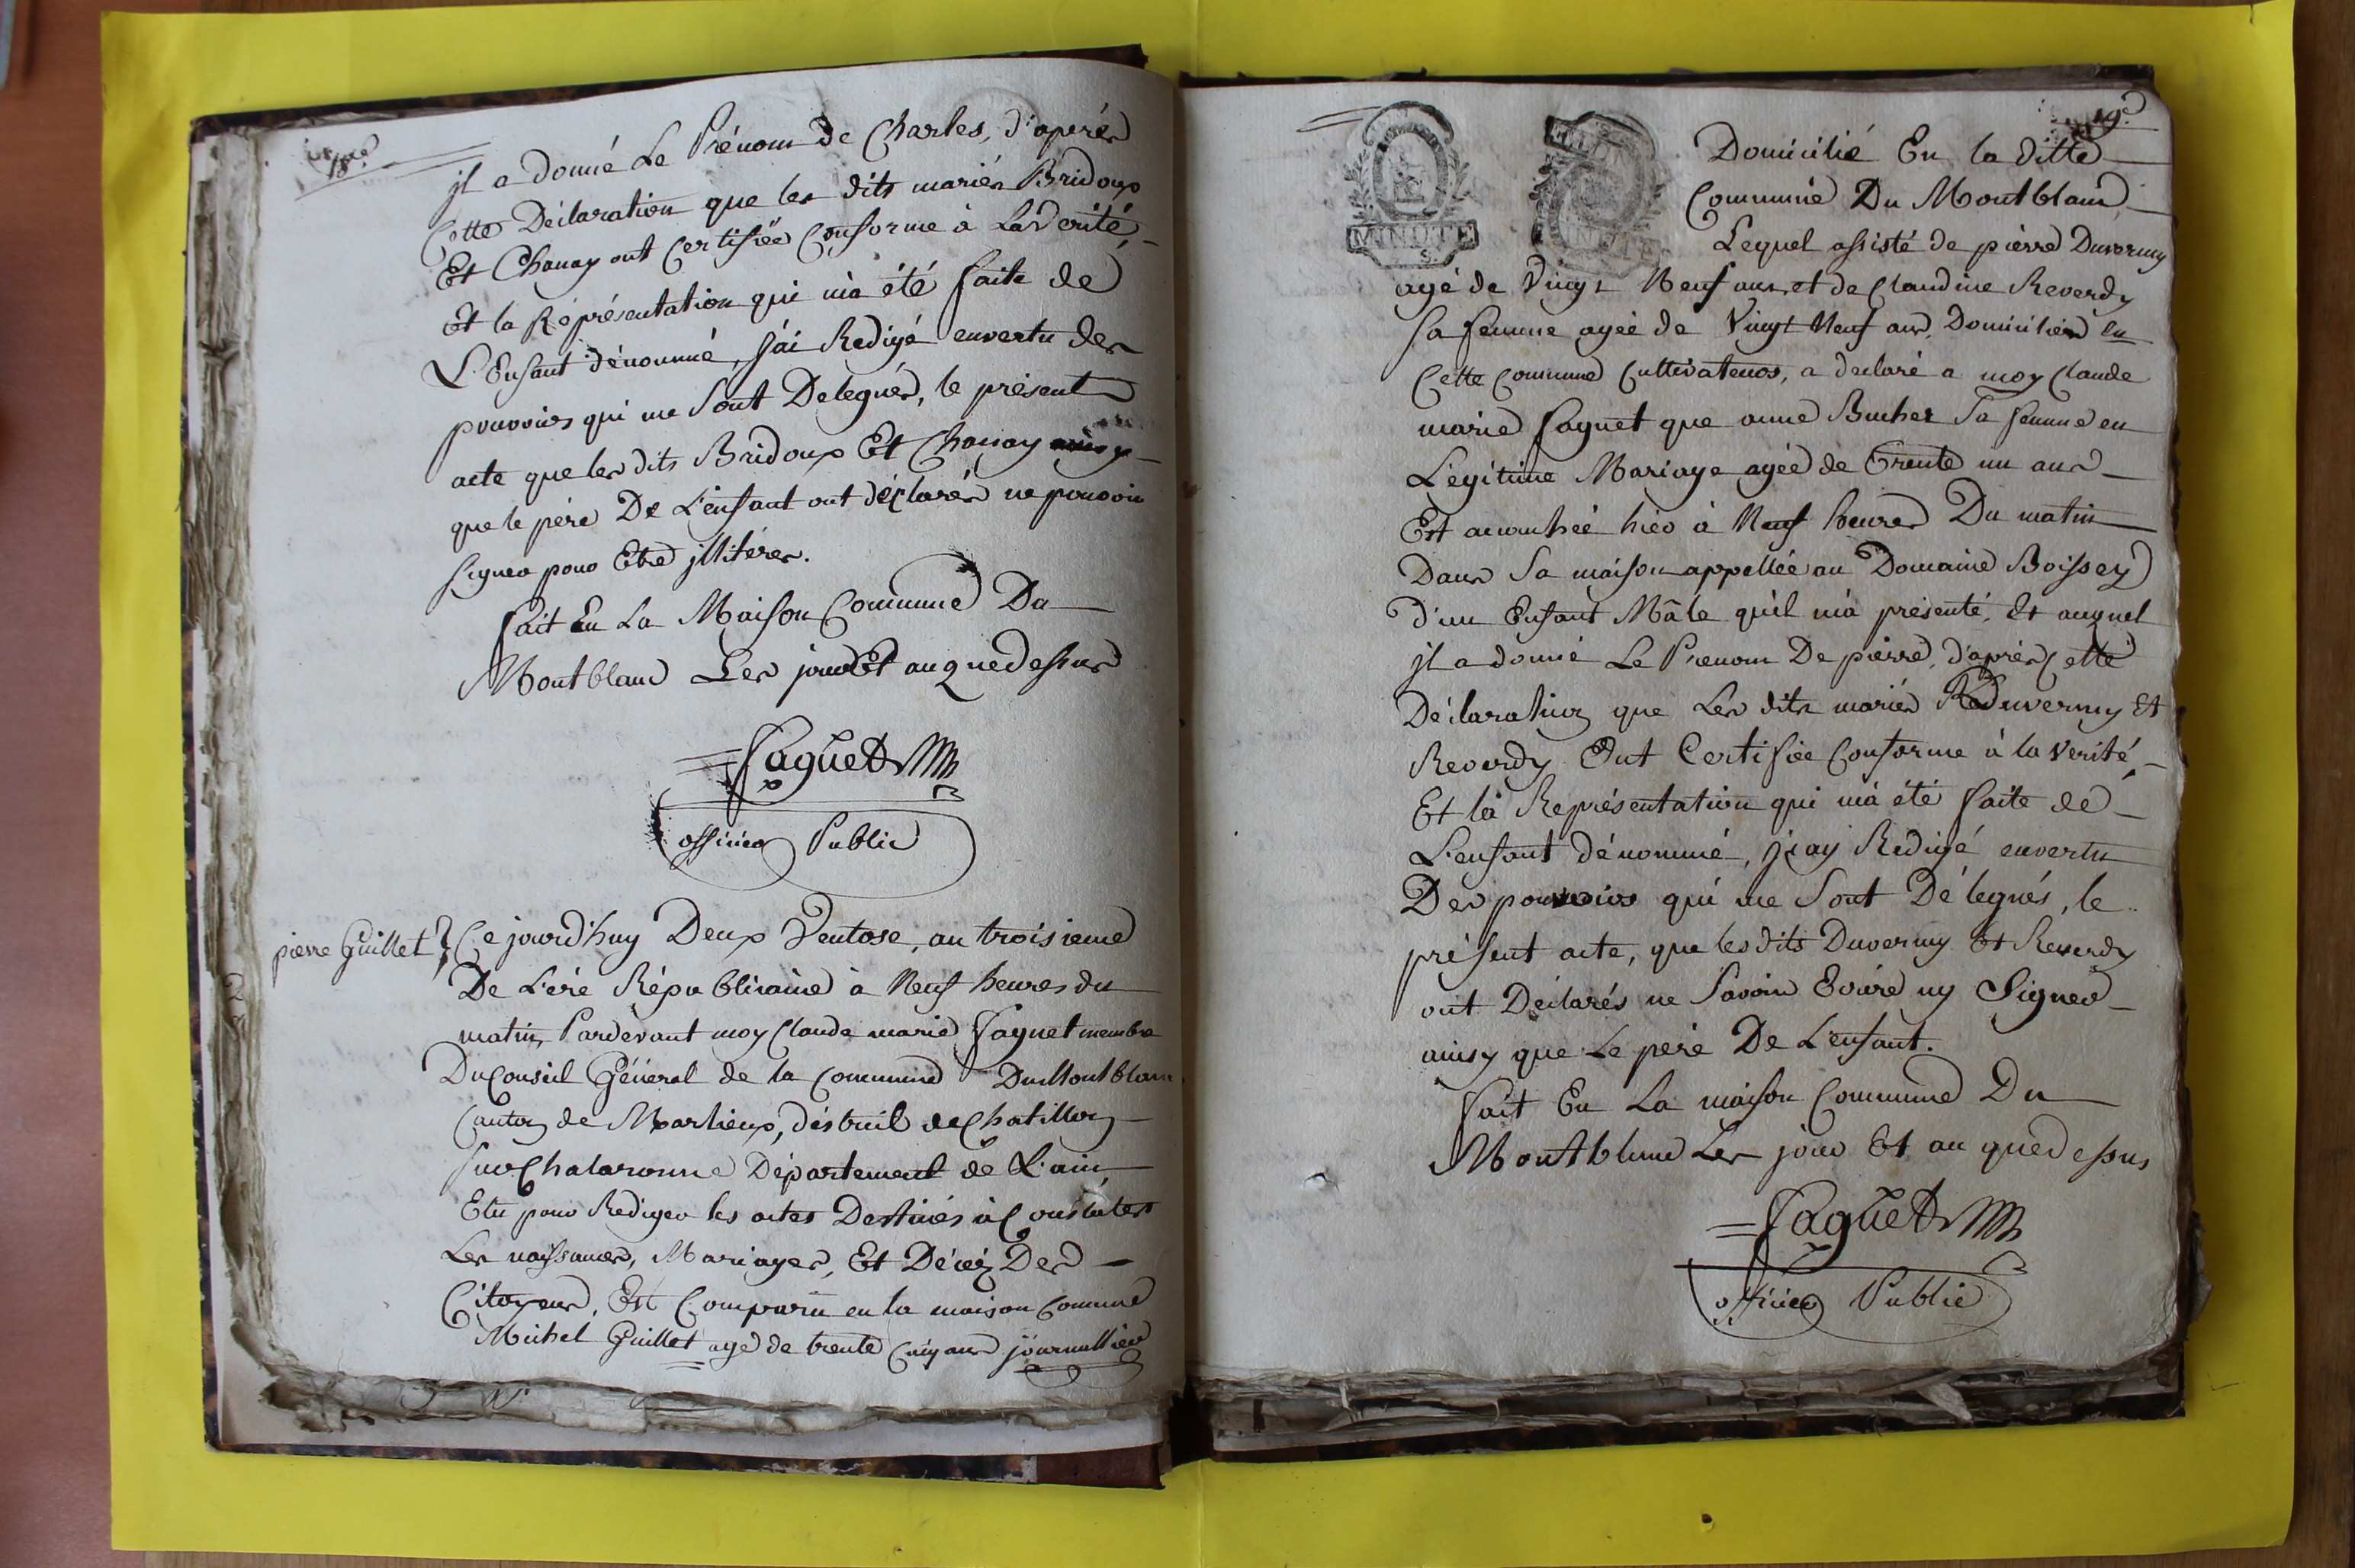 18.e
jl a donné Le Prénom de Charles, d'aprés
Cette Déclaration que les dits mariés Bridoux
Et Chanay ont Certifiée Conforme à La Verité,
Et la Réprésentation qui m'a été faite de
L'Enfant dénommé, j'ai Redigé envertu des
pouvoirs qui me sont Delegués, le présent
acte que les dits Bridoux Et Chanay ainsy
que le pere De L'enfant ont déclarés ne pouvoir
signer pour Etre jllitérés.
fait En La Maison Commune Du
Montblanc Les jour Et an que dessus
Faguet
officier Public
pierre Guillet
Ce jourd'huy Deux Ventose, an troisieme
De L'ére Républiquaine à Neuf heures du
matin, Pardevant moy Claude marie Faguet membre
Du Conseil Général de la Commune Du Montblanc
Canton de Marlieux, district de Chatillon
sur Chalaronne Département de L'ain,
Elu pour Rediger les actes Destinés à Constater
Les naissances, Mariages, Et Décéz Des
Citoyens, Est Comparu en la maison Commune
Michel Guillet agé de trente Cinq ans journallier
19.e
MINUTE
Domicilié En la ditte
Commune Du Montblanc
Lequel assisté de pierre Duverny
agé de Vingt Neuf ans, et de Claudine Reverdy
sa femme agée de Vingt Neuf ans, Domiciliés en
Cette Commune Cultivateurs, a declaré a moy Claude
marie Faguet que anne Bucher sa femme en
Légitime Mariage agée de Trente un ans
Est accouchée hier à Neuf heures Du matin
Dans sa maison appellée au Domaine Boissey
d'un Enfant Mâle qu'il m'a présenté, Et auquel
jl a donné Le Prenom De pierre, d'aprés Cette
Déclaration que Les dits mariés Duverny Et
Reverdy Ont Certifiée Conforme à la Verité,
Et la Représentation qui m'a été faite de
L'enfant dénommé, j'ay Redigé envertu
Des pouvoirs qui me sont Délegués, le
présent acte, que les dits Duverny Et Reverdy
ont Déclarés ne savoir Ecrire ny Signer
ainsy que Le pere De L'enfant.
fait En La maison Commune Du
Montblanc Les jour Et an que dessus
Faguet
officier Public